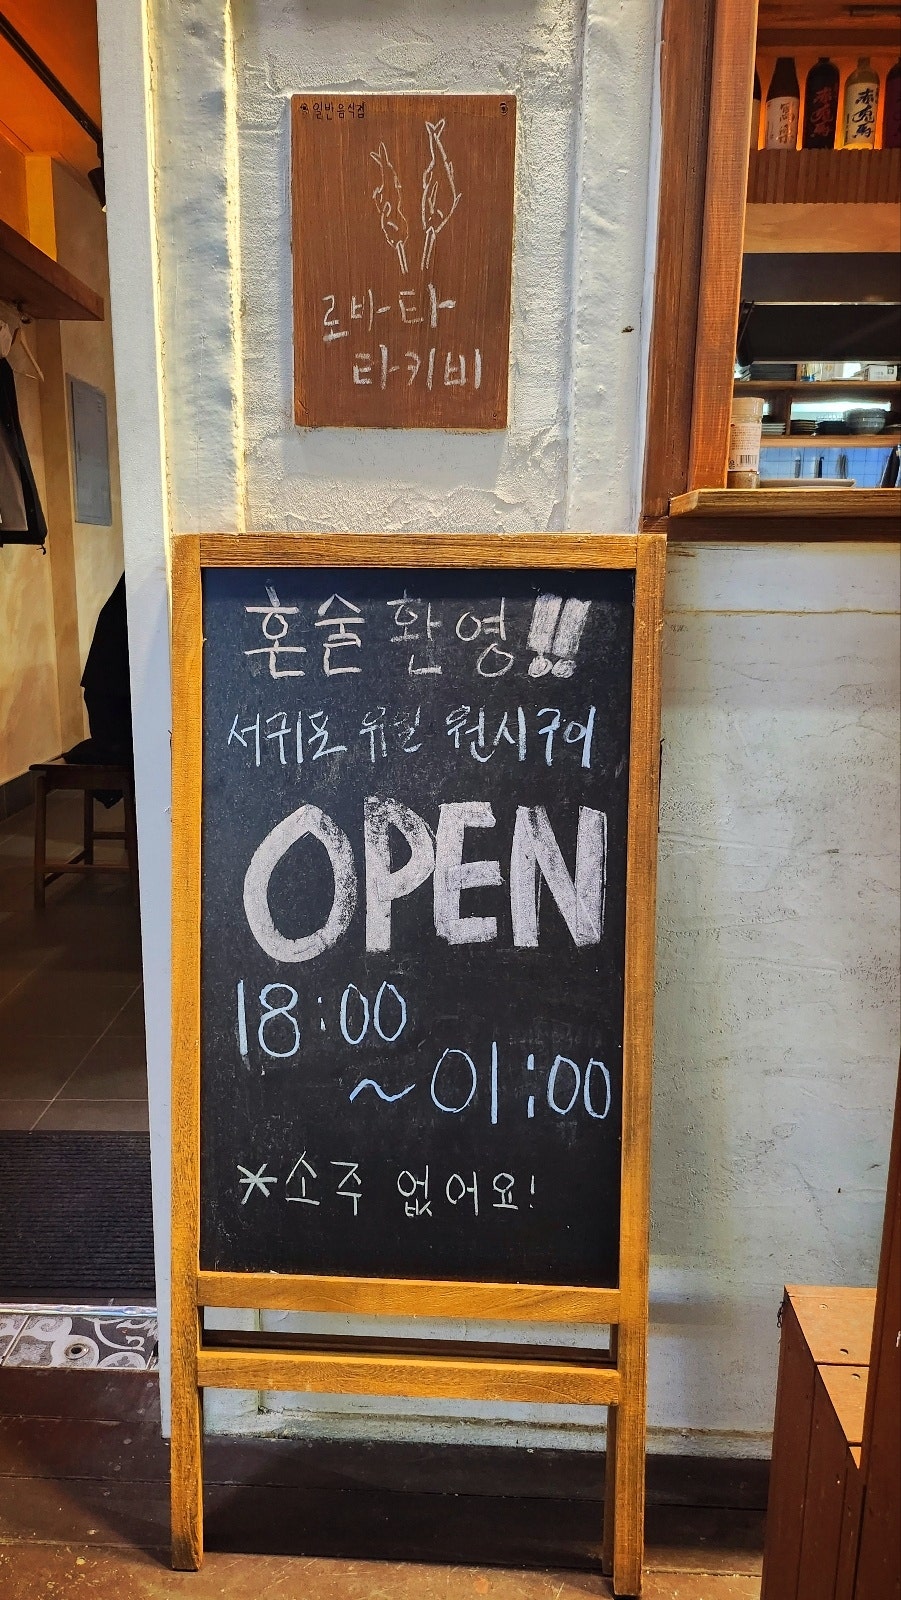 일반음식점
로바타
타키비
赤兎馬
赤兎馬
혼술 환영!!
서귀포 유일 원시구이
OPEN
18:00
~01:00
*소주 없어요!